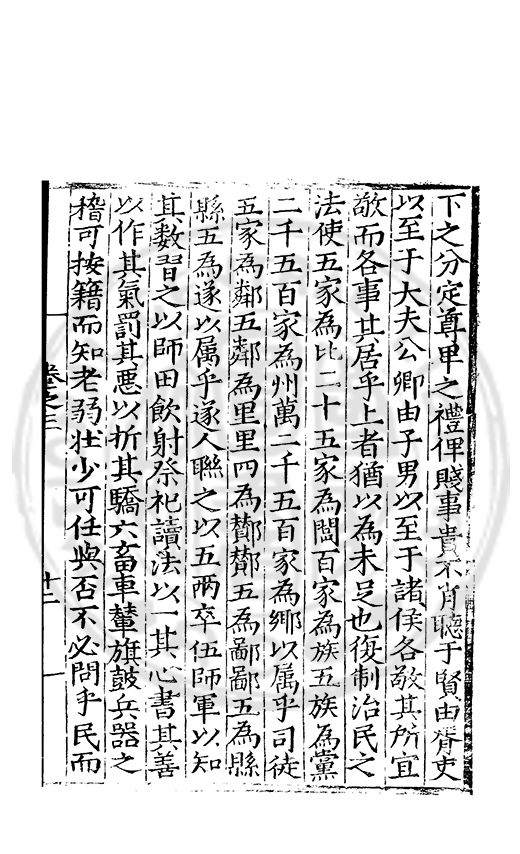 下之分定尊卑之禮俾賤事貴不肖聽于賢由胥吏
以至于大夫公卿由子男以至于諸侯各敬其所宜
敬而各事其居乎上者猶以為未足也復制治民之
法使五家為比二十五家為閭百家為族五族為黨
二千五百家為州萬二千五百家為鄉以属乎司徒
五家為鄰五鄰為里里四為酇酇五為鄙鄙五為縣
縣五為遂以属乎遂人聯之以五兩卒伍師軍以知
其數習之以師田飲射祭祀讀法以一其心書其善
以作其氣罰其惡以折其驕六畜車輦旗鼓兵器之
稽可按籍而知老弱壮少可任與否不必問乎民而
卷之三
十二